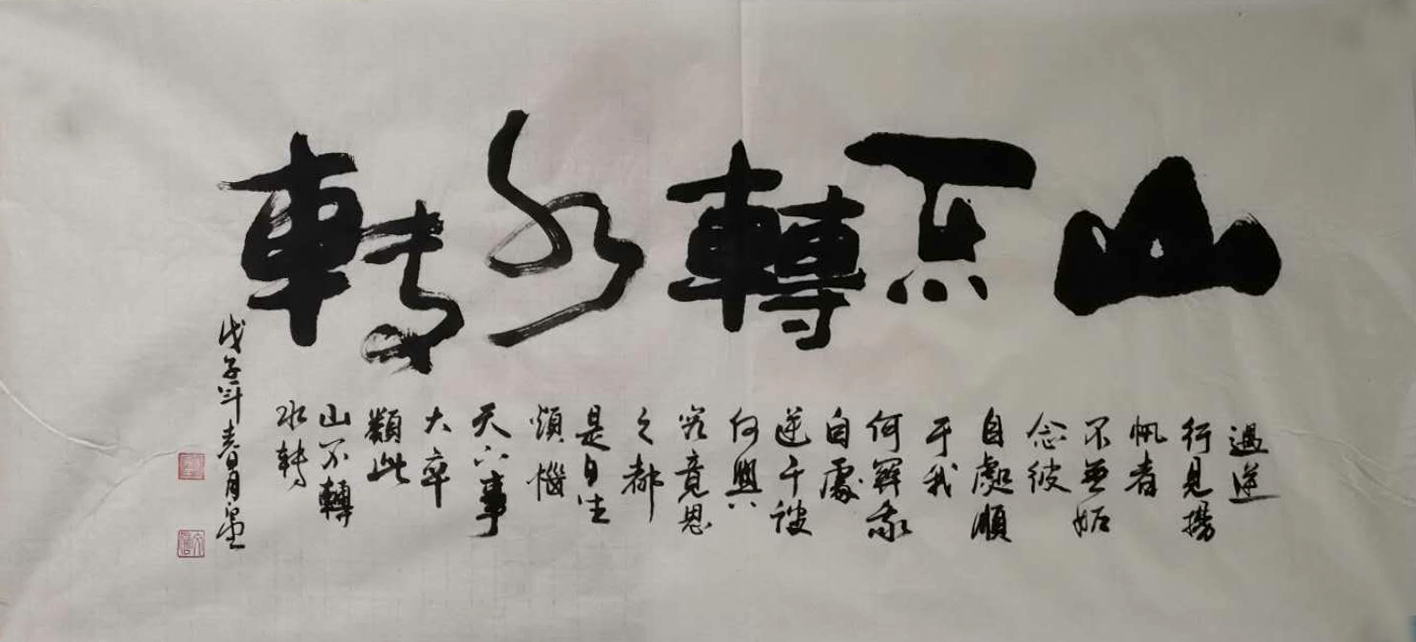 山不轉水轉
遇逆
行見揚
帆者
不無妬
念彼
自處順
于我
何關我
自處
逆于彼
何與
究竟思
之都
是自生
煩惱
天下事
大率
類此
山不轉
水轉
戊子年春月墨